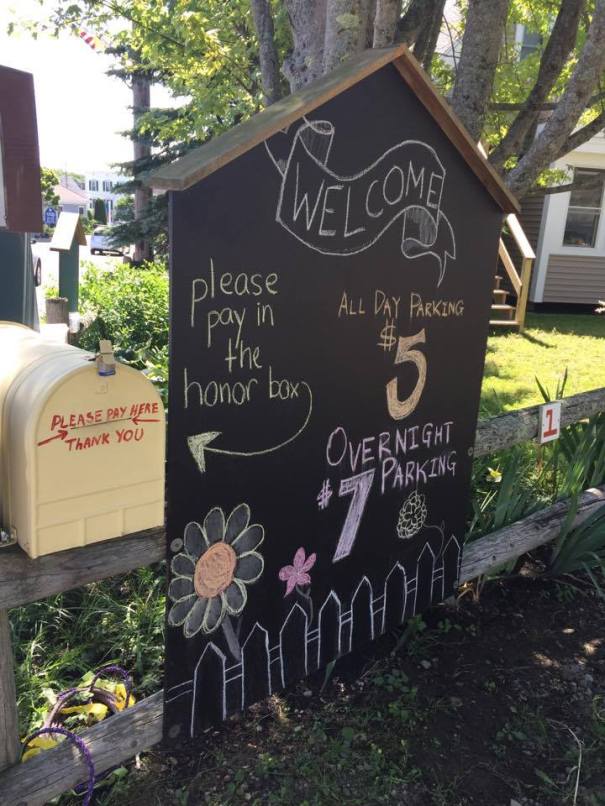 WELCOME
please
pay in
the
honor box
ALL DAY PARKING
$5
OVERNIGHT
PARKING
$7
PLEASE PAY HERE
THANK YOU
1